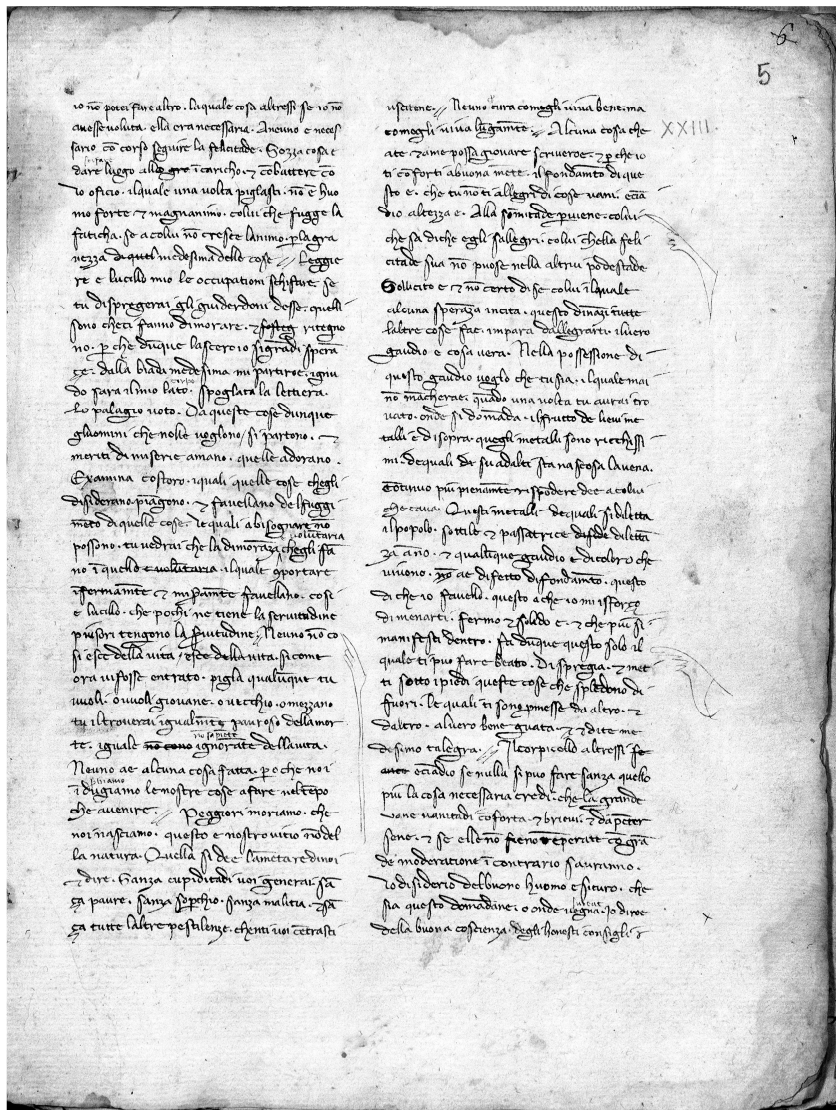 6
5
io nō potei fare altro. la quale cosa altressi se io nō
avesse voluta. ella era necessaria. A neuno e neces
sario cō corso seguire la felicitade. Sozza cosa e
dare luogo īcaricho. ⁊ cōbattere cō
lo oficio. il quale una volta pigliasti. nō e huo
mo forte ⁊ magnanimo. colui che fugge la
faticha. se a colui nō cresce lanimo. p la gra
vezza di quel medesima delle cose // Leggie
re e lucillo mio le occupationi schifare. se
tu dispregerai gli guiderdoni desse. quelli
sono che ti fanno dimorare. ⁊ ritegno
no. p che duque lascero io si grādi sperā
çe. dalla biadi medesima mi partiroe. ignu
do sara il mio lato. corpo spogliata la lettiera.
lo palagio voto. Da queste cose dunque
gluomini che nolle voglono / si partono. ⁊
meriti di miserie amano. quelle adorano.
Examina costoro. i quali quelle cose chegli
disiderano piāgono. ⁊ favellano del fuggi
mēto di quelle cose. le quali a bisognare nō
possono. tu vedrai che la dimorāza chegli fā
voluntaria
no ī quello e voluntaria. il quale portare
īfermamēte ⁊ favellano. cosi
e lucillo. che pochi ne tiene la servitudine
piusori tengono la servitudine // Neuno nō co
si esce della vita / esce della vita. si come
ora vi fosse entrato. pigla qualunque tu
vuoli. o vuoli giovane. o vecchio. o mezzano
tu il troverai igualmēte pauroso della mor
te. iguale no sapiete ignorāte della vita.
Neuno ae alcuna cosa fatta. p o che noi
īdugiamo le nostre cose a fare nel tēpo
che avenire // Peggiori moriamo. che
noi nasciamo. questo e nostro vitio nō del
la natura. Quella si dee lamētare di noi
⁊ dire. Sanza cupiditadi voi generai. sā
ça paure. sanza sopchio. sanza malitia. ⁊ sā
ça tutte laltre pestilenze. chenti voi cētrasti
uscitene // Neuno cura comegli viva bene. ma
comegli viva lūgamēte // Alcuna cosa che XXIII.
a te ⁊ a me possa giovare scriveroe. ⁊ p che io
ti cōforti a buona mēte. il fondamēto di que
sto e. che tu nō ti allegri di cose vani. eciā
dio. altezza e. Alla somitade p viene. colui
che sa di che egli sallegri. colui chella feli
citade sua nō puose nella altrui podestade
Solicito e ⁊ nō certo di se colui il quale
alcuna sperāza incita. questo dināzi tutte
laltre cose fae. impara dallegrarti. il vero
gaudio e cosa vera. Nella possessione di
questo gaudio voglo che tu sia. il quale mai
nō mācherae. quādo una volta tu avrai tro
vato. onde si domāda. il frutto de lievi me
talli e di sopra. quegli metalli sono ricchissi
mi. de quali di su adalti sta nascosa la vena.
cōtinuo piu pienamēte rispodere dee a colui
che cava. Questi metalli. de quali si diletta
il popolo. sottile ⁊ passatrice diletta
za āno. ⁊ qualūque gaudio e di coloro che
viveno. nō ae difetto di fondamēto. questo
di che io favello. questo a che io mi isforço
di menarti. fermo ⁊ soldo e. ⁊ che piu si
manifesti dentro. fa duque questo solo il
quale ti puo fare beato. Dispregia. ⁊ met
ti sotto i piedi queste cose che splēdono di
fuori. le quali ti sono pmesse da altro. ⁊
daltro. al vero bene guata. ⁊ di te me
desimo talegra. // Il corpicello altressi
eciādio se nulla si puo fare sanza quello
piu la cosa necessaria credi. che la grande
vane vanitadi cōforta. ⁊ brievi. ⁊ da peter
sene. ⁊ se elle nō fierō tēperate cō grā
de moderatione ī contrario sauranno.
Lo disiderio del buono huomo e sicuro. che
sia questo domādane. o onde vegna. io diroe
della buona coscienza. degli honesti consigli ⁊